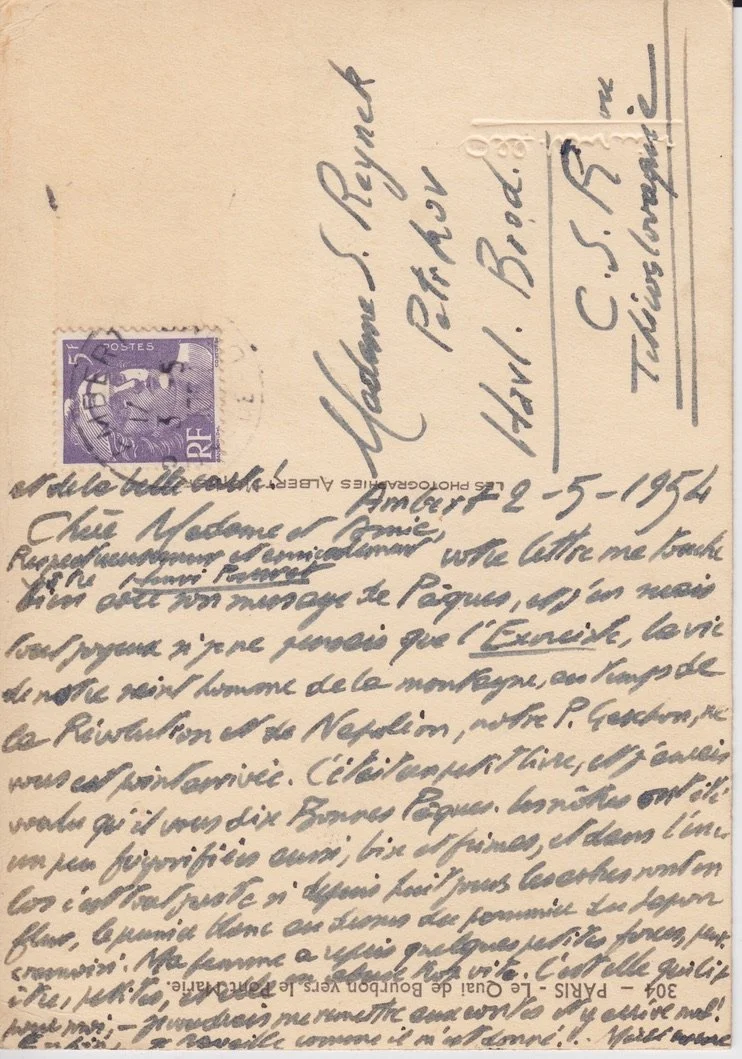 Madame S. Reynek
Petrkov
Havl. Brod.
C.S.R. ou
Tchécoslovaquie
5F POSTES
RF
AMBERT
17
LES PHOTOGRAPHIES ALBERT
304 — PARIS - Le Quai de Bourbon vers le Pont Marie.
Ambert 2-5-1954
Chère Madame et Amie,
votre lettre me touche
bien avec son message de Pâques, et j'en serais
tout joyeux si je ne pensais que l'Exorciste, la vie
de notre saint homme de la montagne, au temps de
la Révolution et de Napoléon, notre P. Gaschon, ne
vous est point arrivée. C'était un petit livre, et j'aurais
voulu qu'il vous dise Bonnes Pâques. Les nôtres ont été
un peu frigorifiées aussi, bise et frimas, et dans l'en-
clos c'est tout juste si depuis huit jours les arbres sont en
fleur, le prunier blanc au dessus du pommier du Japon
cramoisi. Ma femme a repris quelques petites forces, peut
être, petites, et en abuse trop vite. C'est elle qui
pour moi, — je voudrais me remettre aux contes et y arrive mal!
Enfin, je travaille comme il m'est donné!.. Merci encore
et de la belle carte!
Respectueusement et amicalement
Votre Henri Pourrat